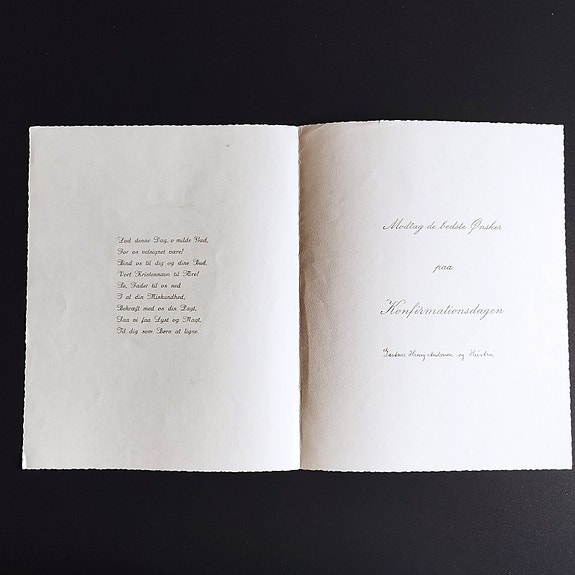 Lad denne Dag, o milde Gud,
For os velsignet være!
Bind os til dig og dine Bud,
Vort Kristennavn til Ære!
Se, Fader til os ned
I al din Miskundhed,
Bekræft med os din Pagt,
Saa vi faa Lyst og Magt,
Til dig som Børn at ligne.
Modtag de bedste Ønsker
paa
Konfirmationsdagen
og Hustru